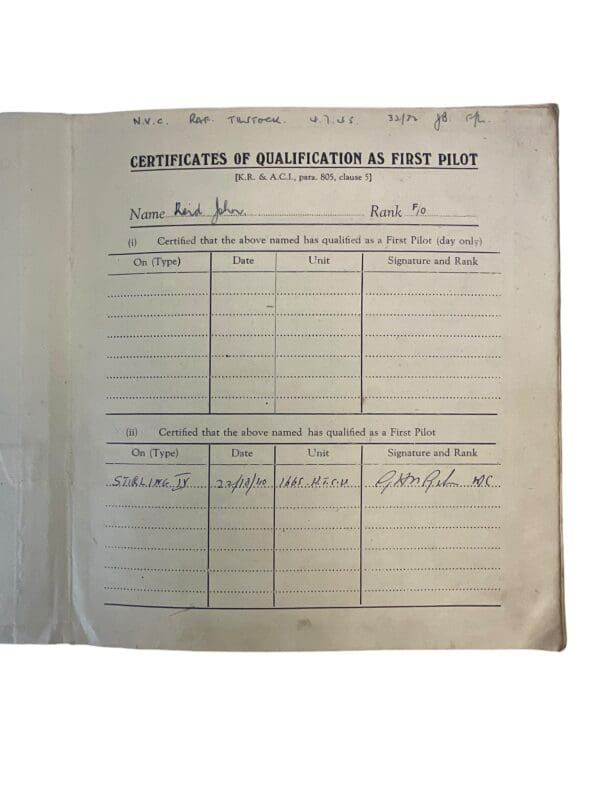 N.V.C. RAF. TILSTOCK. 4.7.45. 32/32 JB. F/L
CERTIFICATES OF QUALIFICATION AS FIRST PILOT
[K.R. & A.C.I., para. 805, clause 5]
Name Reid John. Rank F/O
(i) Certified that the above named has qualified as a First Pilot (day only)
On (Type) Date Unit Signature and Rank
(ii) Certified that the above named has qualified as a First Pilot
On (Type) Date Unit Signature and Rank
STIRLING IV 1665 H.T.C.U.